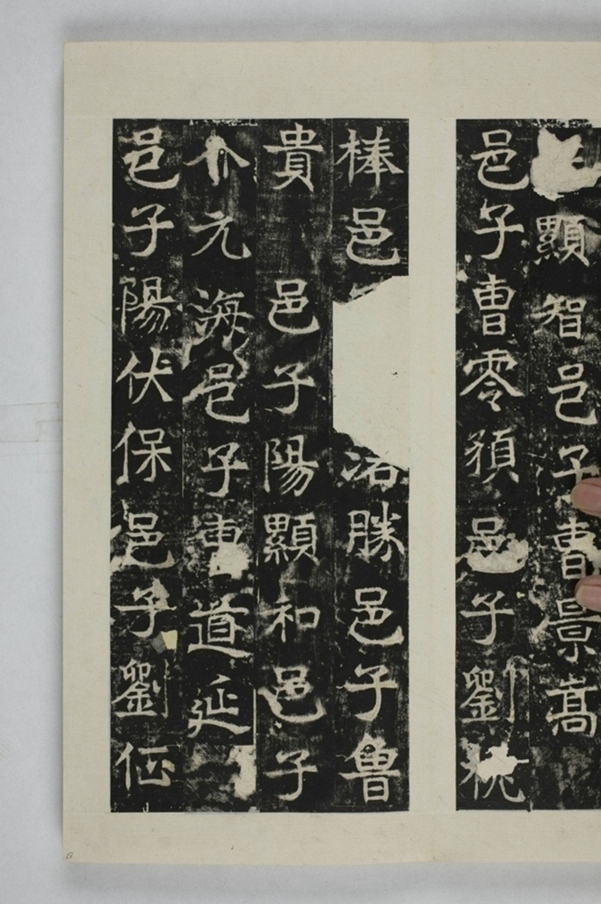 顯智邑子曹景嵩
邑子曹零額邑子劉
棒邑洛勝邑子魯
貴 邑子陽顯和邑子
元海邑子曹道延
邑子陽伏保邑子劉